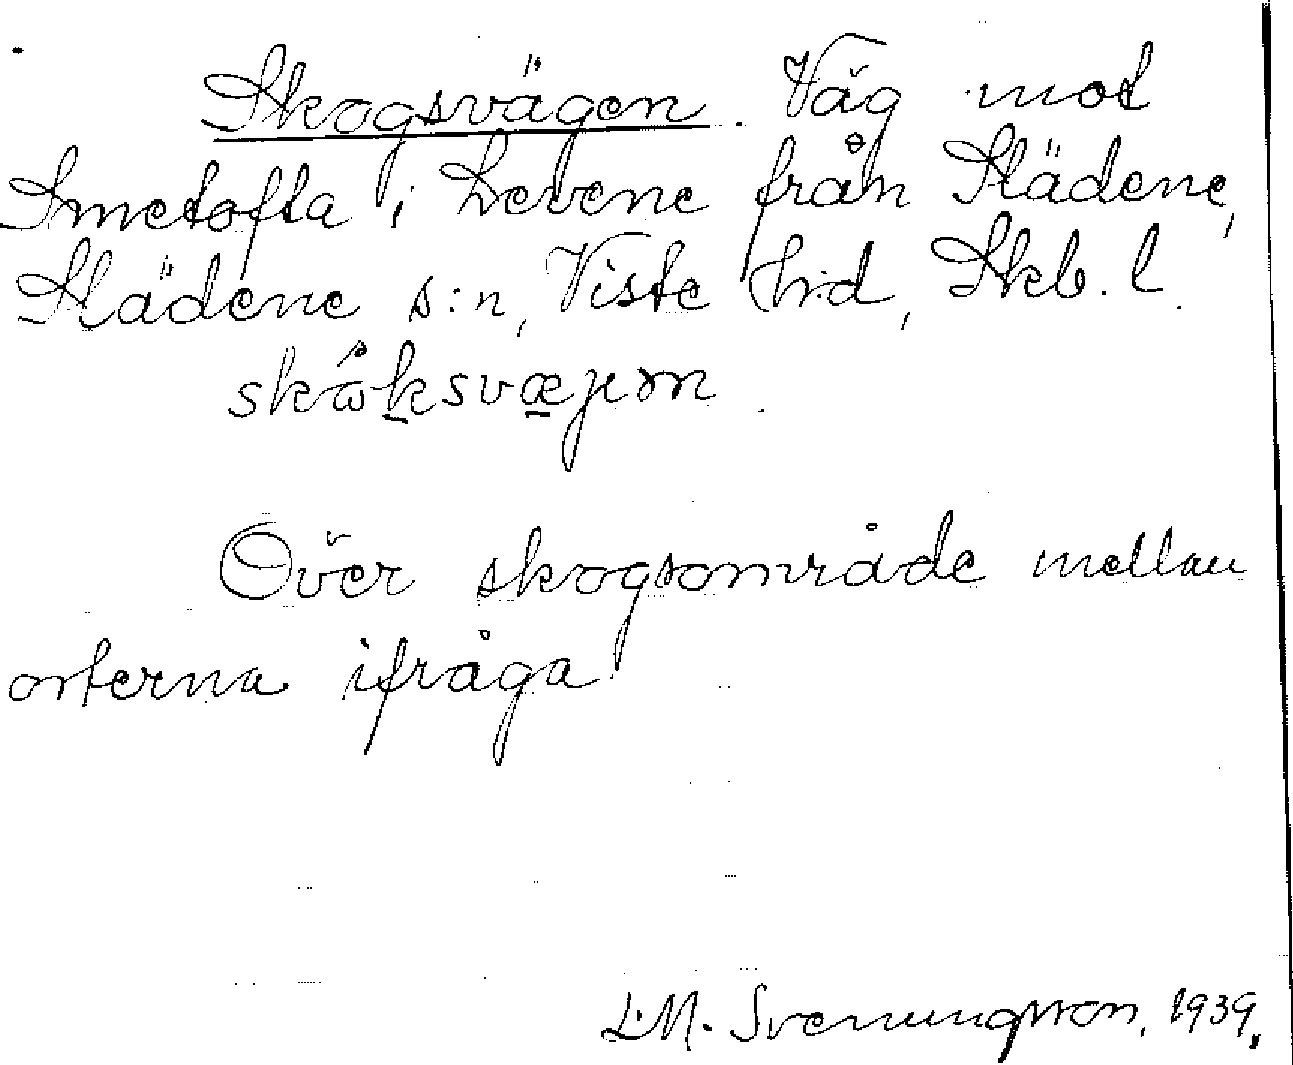 Skogsvägen. Väg mot
Smetofta i Levene från Slädene,
Slädene s:n, Viste hd, Skb. l.
Över skogsområde mellan
orterna ifråga
L.M. Svenungsson, 1939.